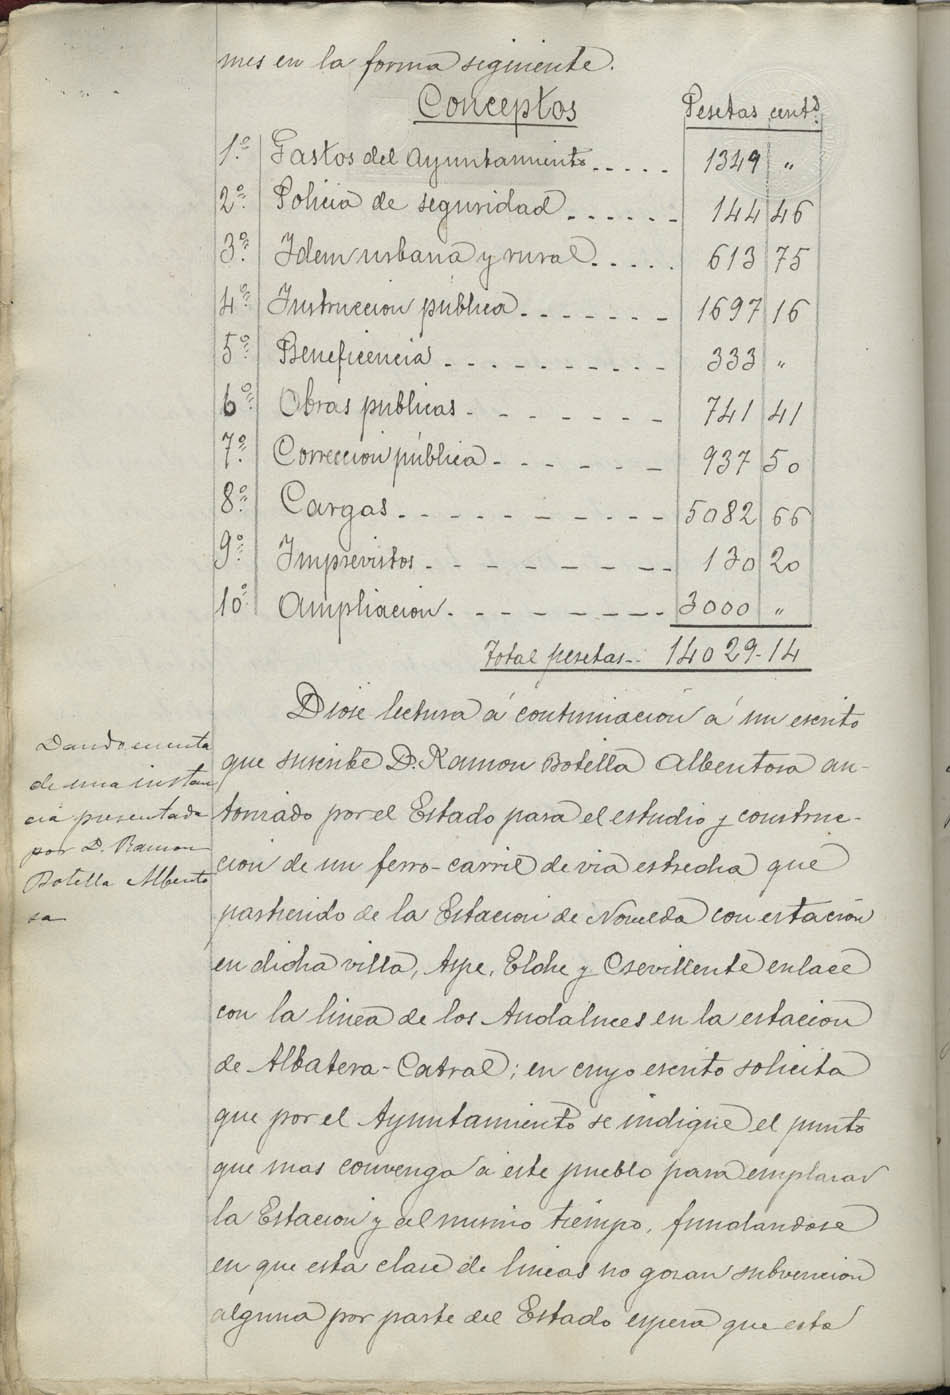 mes en la forma siguiente.
Conceptos Pesetas centˢ
1.º Gastos del Ayuntamiento..... 1349 "
2º Policia de seguridad...... 144 46
3º Idem urbana y rural..... 613 75
4º Instruccion pública....... 1697 16
5º Beneficencia.......... 333 "
6º Obras publicas........ 741 41
7º Correccion pública...... 937 50
8º Cargas.......... 5082 66
9º Imprevistos......... 130 20
10º Ampliacion......... 3000 "
Total pesetas... 14029-14
Diose lectura á continuacion á un escrito
que suscribe D. Ramon Botella Albentosa au-
torizado por el Estado para el estudio y construc-
cion de un ferro-carril de via estrecha que
partiendo de la Estacion de Novelda con estacion
en dicha villa, Aspe, Elche y Crevillente enlace
con la linea de los Andaluces en la estacion
de Albatera-Catral; en cuyo escrito solicita
que por el Ayuntamiento se indique el punto
que mas convenga á este pueblo para emplazar
la Estacion y al mismo tiempo, fundandose
en que esta clase de lineas no gozan subvencion
alguna por parte del Estado espera que este
Dando cuenta
de una instan
cia presentada
por D. Ramon
Botella Albento
sa